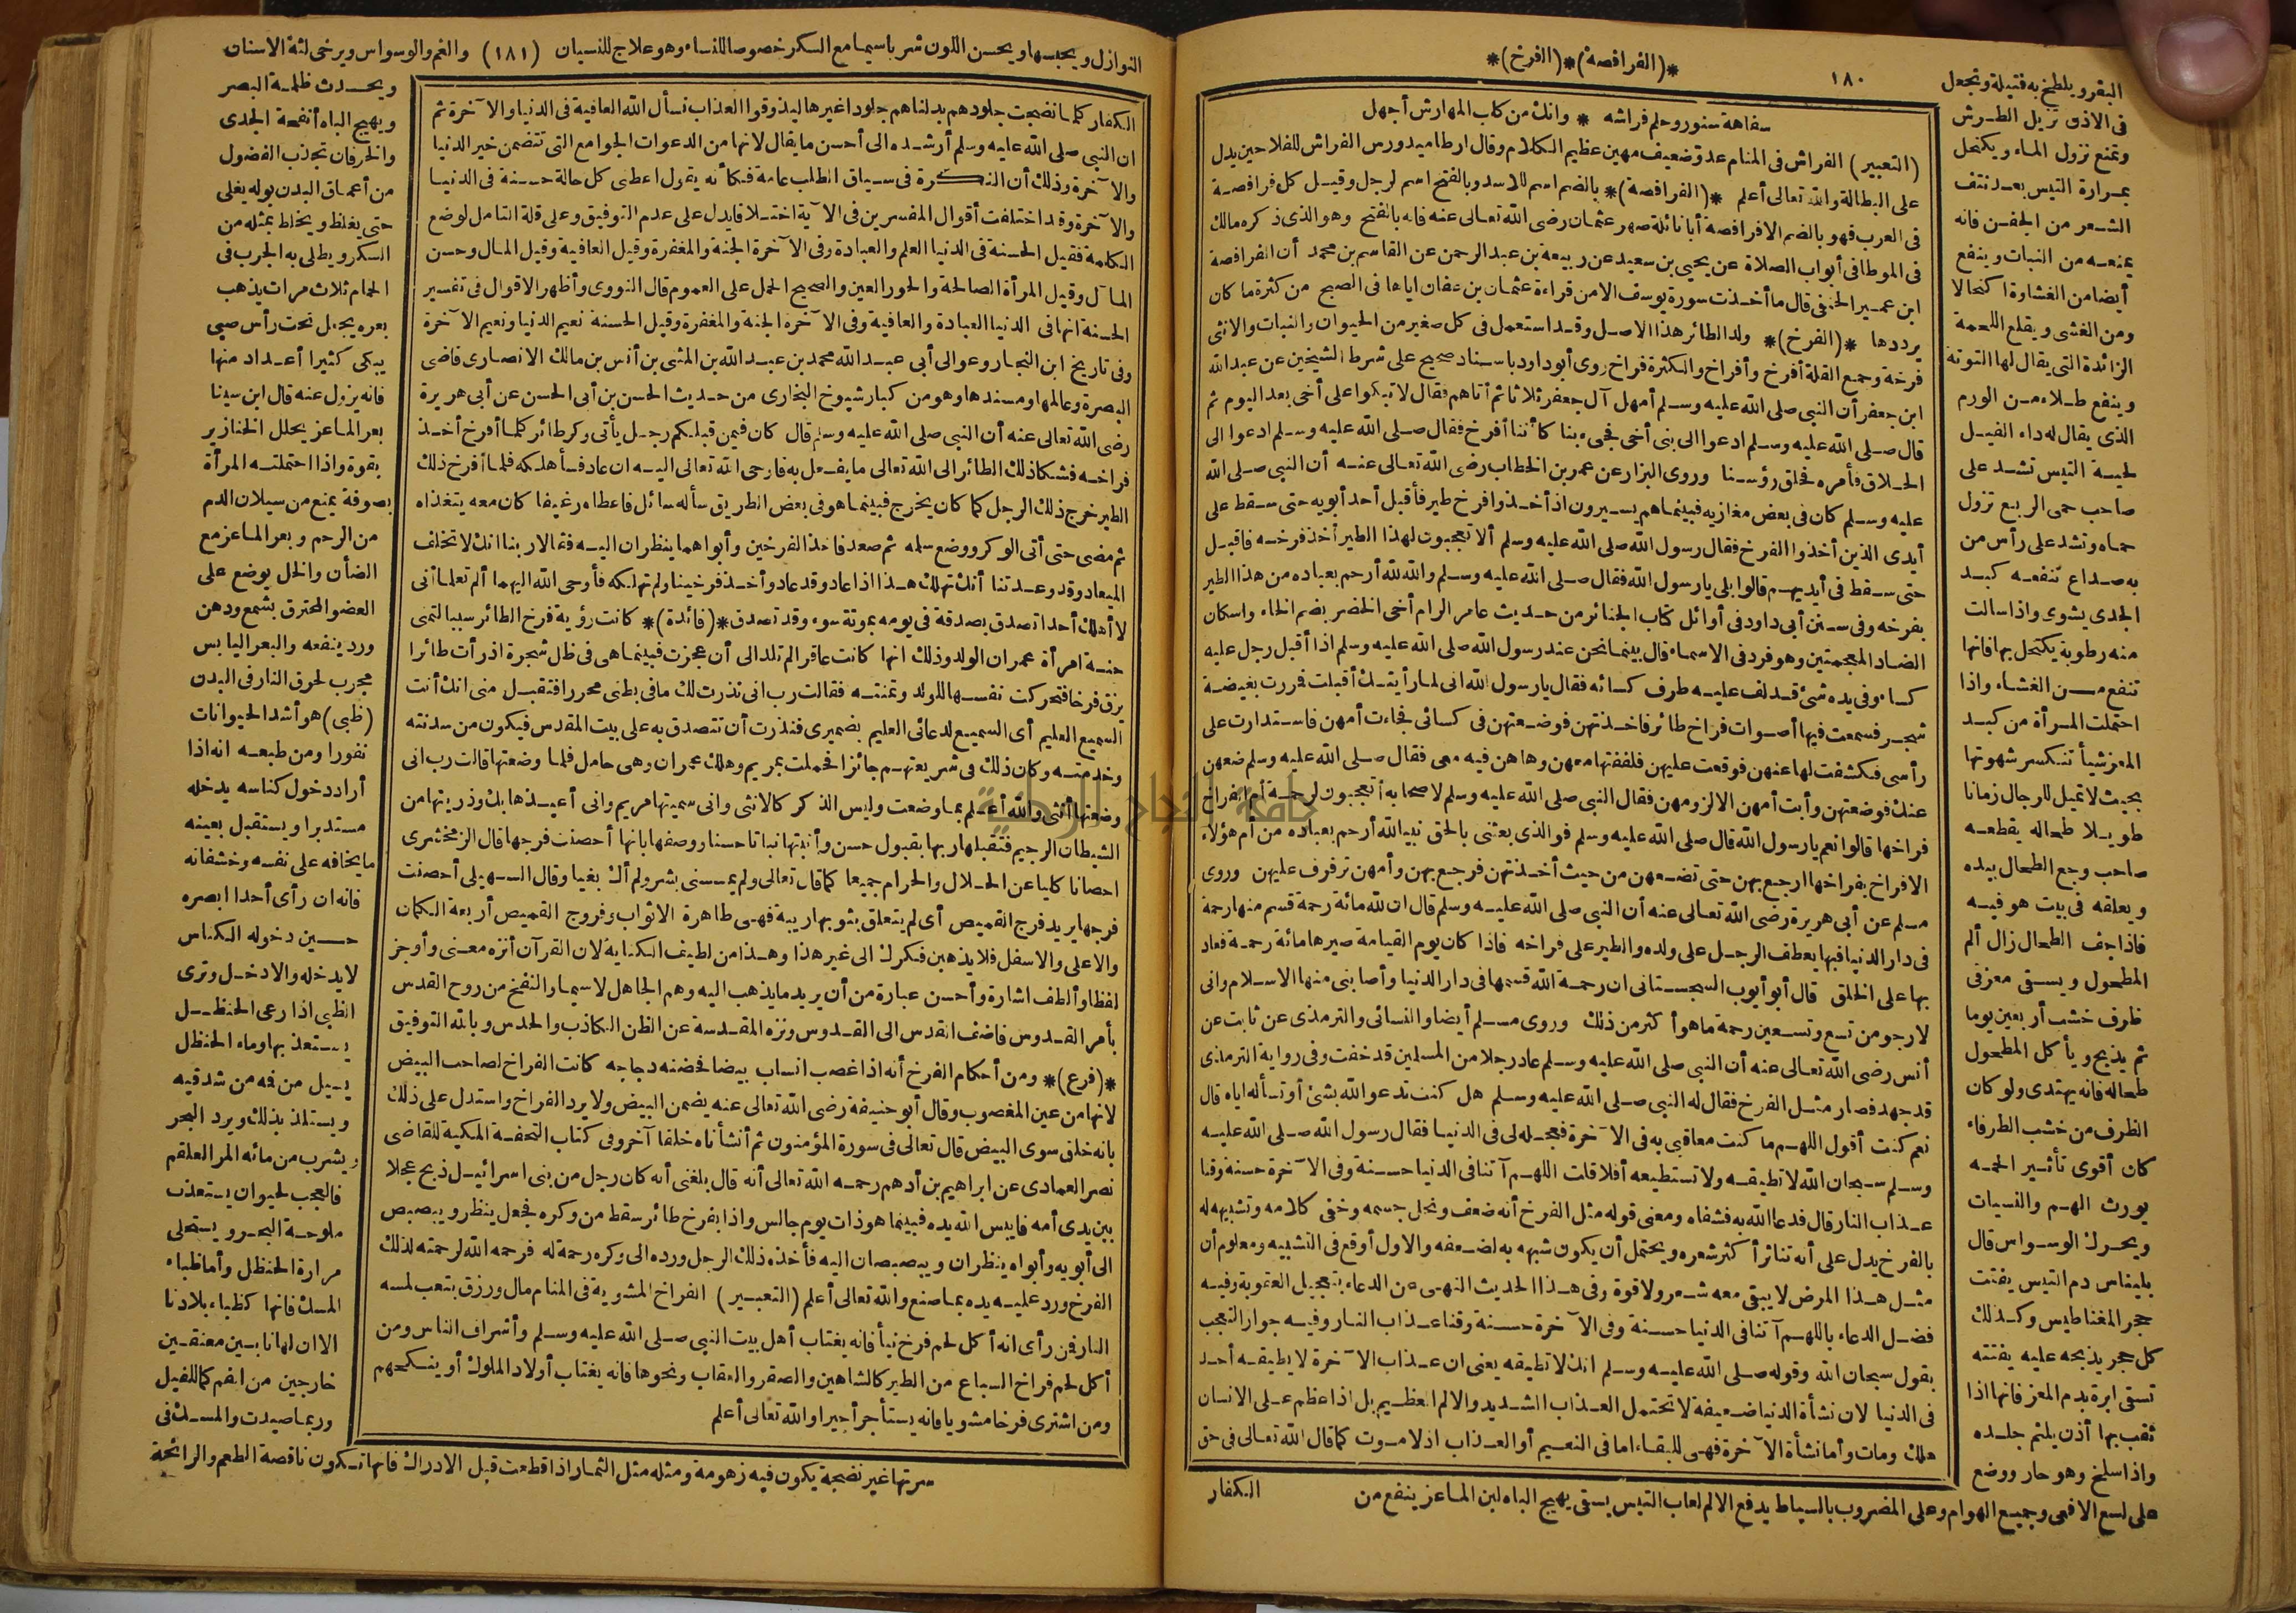 ١٨٠
*(الفرافصة)*(الفرخ)*
سفاهة سنور وحلم فراشه * وانك من كلب المهارش أجهل
(التعبير) الفراش في المنام عدو ضعيف مهين عظيم الكلام وقال ارطاميدورس الفراش للفلاحين يدل
على البطالة والله تعالى أعلم *(الفرافصة)* بالضم اسم للاسد وبالفتح اسم لرجل وقيل كل فرافصة
في العرب فهو بالضم الا فرافصة أبا نائلة صهر عثمان رضى الله تعالى عنه فانه بالفتح وهو الذى ذكره مالك
في الموطا في أبواب الصلاة عن يحيى بن سعيد عن ربيعة بن عبد الرحمن عن القاسم بن محمد أن الفرافصة
ابن عمير الحنفى قال ما أخذت سورة يوسف الا من قراءة عثمان بن عفان اياها في الصبح من كثرة ما كان
يرددها *(الفرخ)* ولد الطائر هذا الاصل وقد استعمل في كل صغير من الحيوان والنبات والانثى
فرخة وجمع القلة أفرخ وأفراخ والكثرة فراخ روى أبو داود باسناد صحيح على شرط الشيخين عن عبد الله
ابن جعفر أن النبي صلى الله عليه وسلم أمهل آل جعفر ثلاثا ثم أتاهم فقال لا تبكوا على أخى بعد اليوم ثم
قال صلى الله عليه وسلم ادعوا الى بنى أخى فجىء بنا كأننا أفرخ فقال صلى الله عليه وسلم ادعوا الى
الحلاق فأمره فحلق رؤسنا وروى البزار عن عمر بن الخطاب رضى الله تعالى عنه أن النبي صلى الله
عليه وسلم كان في بعض مغازيه فبينما هم يسيرون اذ أخذوا فرخ طير فأقبل أحد أبويه حتى سقط على
أيدى الذين أخذوا الفرخ فقال رسول الله صلى الله عليه وسلم ألا تعجبون لهذا الطير أخذ فرخه فاقبل
حتى سقط في أيديهم قالوا بلى يا رسول الله فقال صلى الله عليه وسلم والله لله أرحم بعباده من هذا الطير
بفرخه وفى سنن أبى داود في أوائل كتاب الجنائز من حديث عامر الرام أخى الخضر بضم الخاء واسكان
الضاد المعجمتين وهو فرد في الاسماء قال بينما نحن عند رسول الله صلى الله عليه وسلم اذا أقبل رجل عليه
كساء وفى يده شئ قد لف عليه طرف كسائه فقال يا رسول الله انى لما رأيتك أقبلت فررت بغيضة
شجر فسمعت فيها أصوات فراخ طائر فاخذتهن فوضعتهن في كسائى فجاءت أمهن فاستدارت على
رأسى فكشفت لها عنهن فوقعت عليهن فلففتها معهن وها هن فيه معى فقال صلى الله عليه وسلم ضعهن
عنك فوضعتهن وأبت أمهن الا لزومهن فقال النبي صلى الله عليه وسلم لاصحابه أتعجبون لرحمة أم الفراخ
فراخها قالوا نعم يا رسول الله قال صلى الله عليه وسلم فو الذى بعثنى بالحق نبيا لله أرحم بعباده من أم هؤلاء
الافراخ بفراخها ارجع بهن حتى تضعهن من حيث أخذتهن فرجع بهن وأمهن ترفرف عليهن وروى
مسلم عن أبى هريرة رضى الله تعالى عنه أن النبي صلى الله عليه وسلم قال ان لله مائة رحمة قسم منها رحمة
في دار الدنيا فبها يعطف الرجل على ولده والطير على فراخه فاذا كان يوم القيامة صيرها مائة رحمة فعاد
بها على الخلق قال أبو أيوب السجستانى ان رحمة الله قسمها في دار الدنيا وأصابنى منها الاسلام وانى
لارجو من تسع وتسعين رحمة ما هو أكثر من ذلك وروى مسلم أيضا والنسائى والترمذى عن ثابت عن
أنس رضى الله تعالى عنه أن النبي صلى الله عليه وسلم عاد رجلا من المسلمين قد خفت وفى رواية الترمذى
قد جهد فصار مثل الفرخ فقال له النبي صلى الله عليه وسلم هل كنت تدعو الله بشئ أو تسأله اياه قال
نعم كنت أقول اللهم ما كنت معاقبى به في الآخرة فعجله لى في الدنيا فقال رسول الله صلى الله عليه
وسلم سبحان الله لا تطيقه ولا تستطيعه أفلا قلت اللهم آتنا في الدنيا حسنة وفى الآخرة حسنة وقنا
عذاب النار قال فدعا الله به فشفاه ومعنى قوله مثل الفرخ أنه ضعف ونحل جسمه وخفى كلامه وتشبيهه له
بالفرخ يدل على أنه تناثر أكثر شعره ويحتمل أن يكون شبهه به لضعفه والاول أوقع في التشبيه ومعلوم أن
مثل هذا المرض لا يبقى معه شعر ولا قوة وفى هذا الحديث النهى عن الدعاء بتعجيل العقوبة وفيه
فضل الدعاء باللهم آتنا في الدنيا حسنة وفى الآخرة حسنة وقنا عذاب النار وفيه جواز التعجب
بقول سبحان الله وقوله صلى الله عليه وسلم انك لا تطيقه يعنى ان عذاب الآخرة لا يطيقه أحد
في الدنيا لان نشأة الدنيا ضعيفة لا تحتمل العذاب الشديد والالم العظيم بل اذا عظم على الانسان
هلك ومات وأما نشأة الآخرة فهى للبقاء اما في النعيم أو العذاب اذ لا موت كما قال الله تعالى في حق
الكفار
البقر ويلطخ به فتيلة وتجعل
في الاذن تزيل الطرش
وتمنع نزول الماء ويكتحل
بمرارة التيس بعد نتف
الشعر من الجفن فانه
يمنعه من النبات وينفع
أيضا من الغشاوة اكتحالا
ومن الغشى ويقلع اللحمة
الزائدة التى يقال لها التوتة
وينفع طلاء من الورم
الذى يقال له داء الفيل
لحية التيس تشد على
صاحب حمى الربع تزول
حماه وتشد على رأس من
به صداع تنفعه كبد
الجدى يشوى واذا سالت
منه رطوبة يكتحل بها فانها
تنفع من الغشاء واذا
احتملت المرأة من كبد
المعز شيأ تنكسر شهوتها
بحيث لا تميل للرجال زمانا
طويلا طحاله يقطعه
صاحب وجع الطحال بيده
ويعلقه في بيت هو فيه
فاذا جف الطحال زال ألم
المطحول ويسقى معزفى
ظرف خشب أربعين يوما
ثم يذبح ويأكل المطحول
طحاله فانه يهتدى ولو كان
الظرف من خشب الطرفاء
كان أقوى تأثير الحمه
يورث الهم والنسيان
ويحرك الوسواس قال
بليناس دم التيس يفتت
حجر المغناطيس وكذلك
كل حجر يذبحه عليه يفتته
تسقى ابرة بدم المعز فانها اذا
ثقب بها أذن يلتم جلده
واذا سلخ وهو حار ووضع
على لسع الافعى وجميع الهوام وعلى المضروب بالسياط يدفع الالم لعاب التيس يسقى يهيج الباه لبن الماعز ينفع من
النوازل ويحبسها ويحسن اللون شربا سيما مع السكر خصوصا للنساء وهو علاج للنسيان (١٨١) والغم والوسواس ويرخى لثة الاسنان
الكفار كلما نضجت جلودهم بدلناهم جلودا غيرها ليذوقوا العذاب نسأل الله العافية في الدنيا والآخرة ثم
ان النبي صلى الله عليه وسلم أرشده الى أحسن ما يقال لانها من الدعوات الجوامع التى تتضمن خير الدنيا
والآخرة وذلك أن النكرة في سياق الطلب عامة فكأنه يقول اعطنى كل حالة حسنة في الدنيا
والآخرة وقد اختلفت أقوال المفسرين في الآية اختلافا يدل على عدم التوفيق وعلى قلة التامل لوضع
الكلمة فقيل الحسنة في الدنيا العلم والعبادة وفى الآخرة الجنة والمغفرة وقيل العافية وقيل المال وحسن
المآل وقيل المرأة الصالحة والحور العين والصحيح الحمل على العموم قال النووى وأظهر الاقوال في تفسير
الحسنة انها في الدنيا العبادة والعافية وفى الآخرة الجنة والمغفرة وقيل الحسنة نعيم الدنيا ونعيم الآخرة
وفى تاريخ ابن النجار وعوالى أبى عبد الله محمد بن عبد الله بن المثنى بن أنس بن مالك الانصارى قاضى
البصرة وعالمها ومسندها وهو من كبار شيوخ البخارى من حديث الحسن بن أبى الحسن عن أبى هريرة
رضى الله تعالى عنه أن النبي صلى الله عليه وسلم قال كان فيمن قبلكم رجل يأتى وكر طائر كلما أفرخ أخذ
فراخه فشكا ذلك الطائر الى الله تعالى ما يفعل به فاوحى الله تعالى اليه ان عاد فسأهلكه فلما أفرخ ذلك
الطير خرج ذلك الرجل كما كان يخرج فبينما هو في بعض الطريق سأله سائل فاعطاه رغيفا كان معه يتغذاه
ثم مضى حتى أتى الوكر ووضع سلمه ثم صعد فاخذ الفرخين وأبواهما ينظران اليه فقالا ربنا انك لا تخلف
الميعاد وقد وعدتنا أنك تهلك هذا اذا عاد وقد عاد وأخذ فرخينا ولم تهلكه فأوحى الله اليهما ألم تعلما أنى
لا أهلك أحدا تصدق بصدقة في يومه بموتة سوء وقد تصدق *(فائدة)* كانت رؤية فرخ الطائر سببا لتمنى
حنة امرأة عمران الولد وذلك انها كانت عاقرا لم تلد الى أن عجزت فبينما هى في ظل شجرة اذ رأت طائرا
يزق فرخا فتحركت نفسها للولد وتمنته فقالت رب انى نذرت لك ما في بطنى محررا فتقبل منى انك أنت
السميع العليم أى السميع لدعائى العليم بضميرى فنذرت أن تتصدق به على بيت المقدس فيكون من سدنته
وخدمته وكان ذلك في شريعتهم جائزا فحملت بمريم وهلك عمران وهى حامل فلما وضعتها قالت رب انى
وضعتها أنثى والله أعلم بما وضعت وليس الذكر كالانثى وانى سميتها مريم وانى أعيذها بك وذريتها من
الشيطان الرجيم فتقبلها ربها بقبول حسن وأنبتها نباتا حسنا ووصفها بانها أحصنت فرجها قال الزمخشرى
احصانا كليا عن الحلال والحرام جميعا كما قال تعالى ولم يمسسنى بشر ولم أك بغيا وقال السهيلى أحصنت
فرجها يريد فرج القميص أى لم يتعلق بثوبها ريبة فهى طاهرة الاثواب وفروج القميص أربعة الكمان
والاعلى والاسفل فلا يذهبن فكرك الى غير هذا وهذا من لطيف الكناية لان القرآن أنزه معنى وأوجز
لفظا وألطف اشارة وأحسن عبارة من أن يريد ما يذهب اليه وهم الجاهل لا سيما والنفخ من روح القدس
بأمر القدوس فاضف القدس الى القدوس ونزه المقدسة عن الظن الكاذب والحدس وبالله التوفيق
*(فرع)* ومن أحكام الفرخ أنه اذا غصب انسان بيضا فحضنه دجاجة كانت الفراخ لصاحب البيض
لانها من عين المغصوب وقال أبو حنيفة رضى الله تعالى عنه يضمن البيض ولا يرد الفراخ واستدل على ذلك
بانه خلق سوى البيض قال تعالى في سورة المؤمنون ثم أنشأناه خلقا آخر وفى كتاب التحفة المكية للقاضى
نصر العمادى عن ابراهيم بن أدهم رحمه الله تعالى أنه قال بلغنى أنه كان رجل من بنى اسرائيل ذبح عجلا
بين يدى أمه فايبس الله يده فبينما هو ذات يوم جالس واذا بفرخ طائر سقط من وكره فجعل ينظر ويبصبص
الى أبويه وأبواه ينظران ويبصبصان اليه فأخذه ذلك الرجل ورده الى وكره رحمة له فرحمه الله لرحمته لذلك
الفرخ ورد عليه يده بما صنع والله تعالى أعلم (التعبير) الفراخ المشوية في المنام مال ورزق بتعب لمسه
النار فمن رأى انه أكل لحم فرخ نيأ فانه يغتاب أهل بيت النبي صلى الله عليه وسلم وأشراف الناس ومن
أكل لحم فراخ السباع من الطير كالشاهين والصقر والعقاب ونحوها فانه يغتاب أولاد الملوك أو ينكحهم
ومن اشترى فرخا مشويا فانه يستأجر أجيرا والله تعالى أعلم
ويحدث ظلمة البصر
ويهيج الباه أنفحة الجدى
والخرفان تجذب الفضول
من أعماق البدن بوله يغلى
حتى يغلظ ويخلط بمثله من
السكر ويطلى به الجرب في
الحمام ثلاث مرات يذهب
بعره يجعل تحت رأس صبى
يبكى كثيرا أعداد منها
فانه يزول عنه قال ابن سينا
بعر الماعز يحلل الخنازير
بقوة واذا احتملته المرأة
بصوفة يمنع من سيلان الدم
من الرحم وبعر الماعز مع
الضأن والخل يوضع على
العضو المحترق بشمع ودهن
ورد ينفعه والبعر اليابس
مجرب لحرق النار في البدن
(ظبى) هو أشد الحيوانات
نفورا ومن طبعه انه اذا
أراد دخول كناسه يدخله
مستدبرا ويستقبل بعينه
ما يخافه على نفسه وخشفانه
فانه ان رأى أحدا ابصره
حين دخوله الكناس
لا يدخله والا دخل وترى
الظبى اذا رعى الحنظل
يستعذبها وماء الحنظل
يسيل من فمه من شدقيه
ويستلذ بذلك ويرد البحر
ويشرب من مائه المر العلقم
فالعجب لحيوان يستعذب
ملوحة البحر ويستحلى
مرارة الحنظل وأما ظباء
المسك فانها كظباء بلادنا
الا ان لها نابين معنقفين
خارجين من الفم كما للفيل
وربما صيدت والمسك في
سرتها غير نضيجة يكون فيه زهومة ومثله مثل الثمار اذا قطعت قبل الادراك فانها تكون ناقصة الطعم والرائحة
جامعة النجاح الوطنية